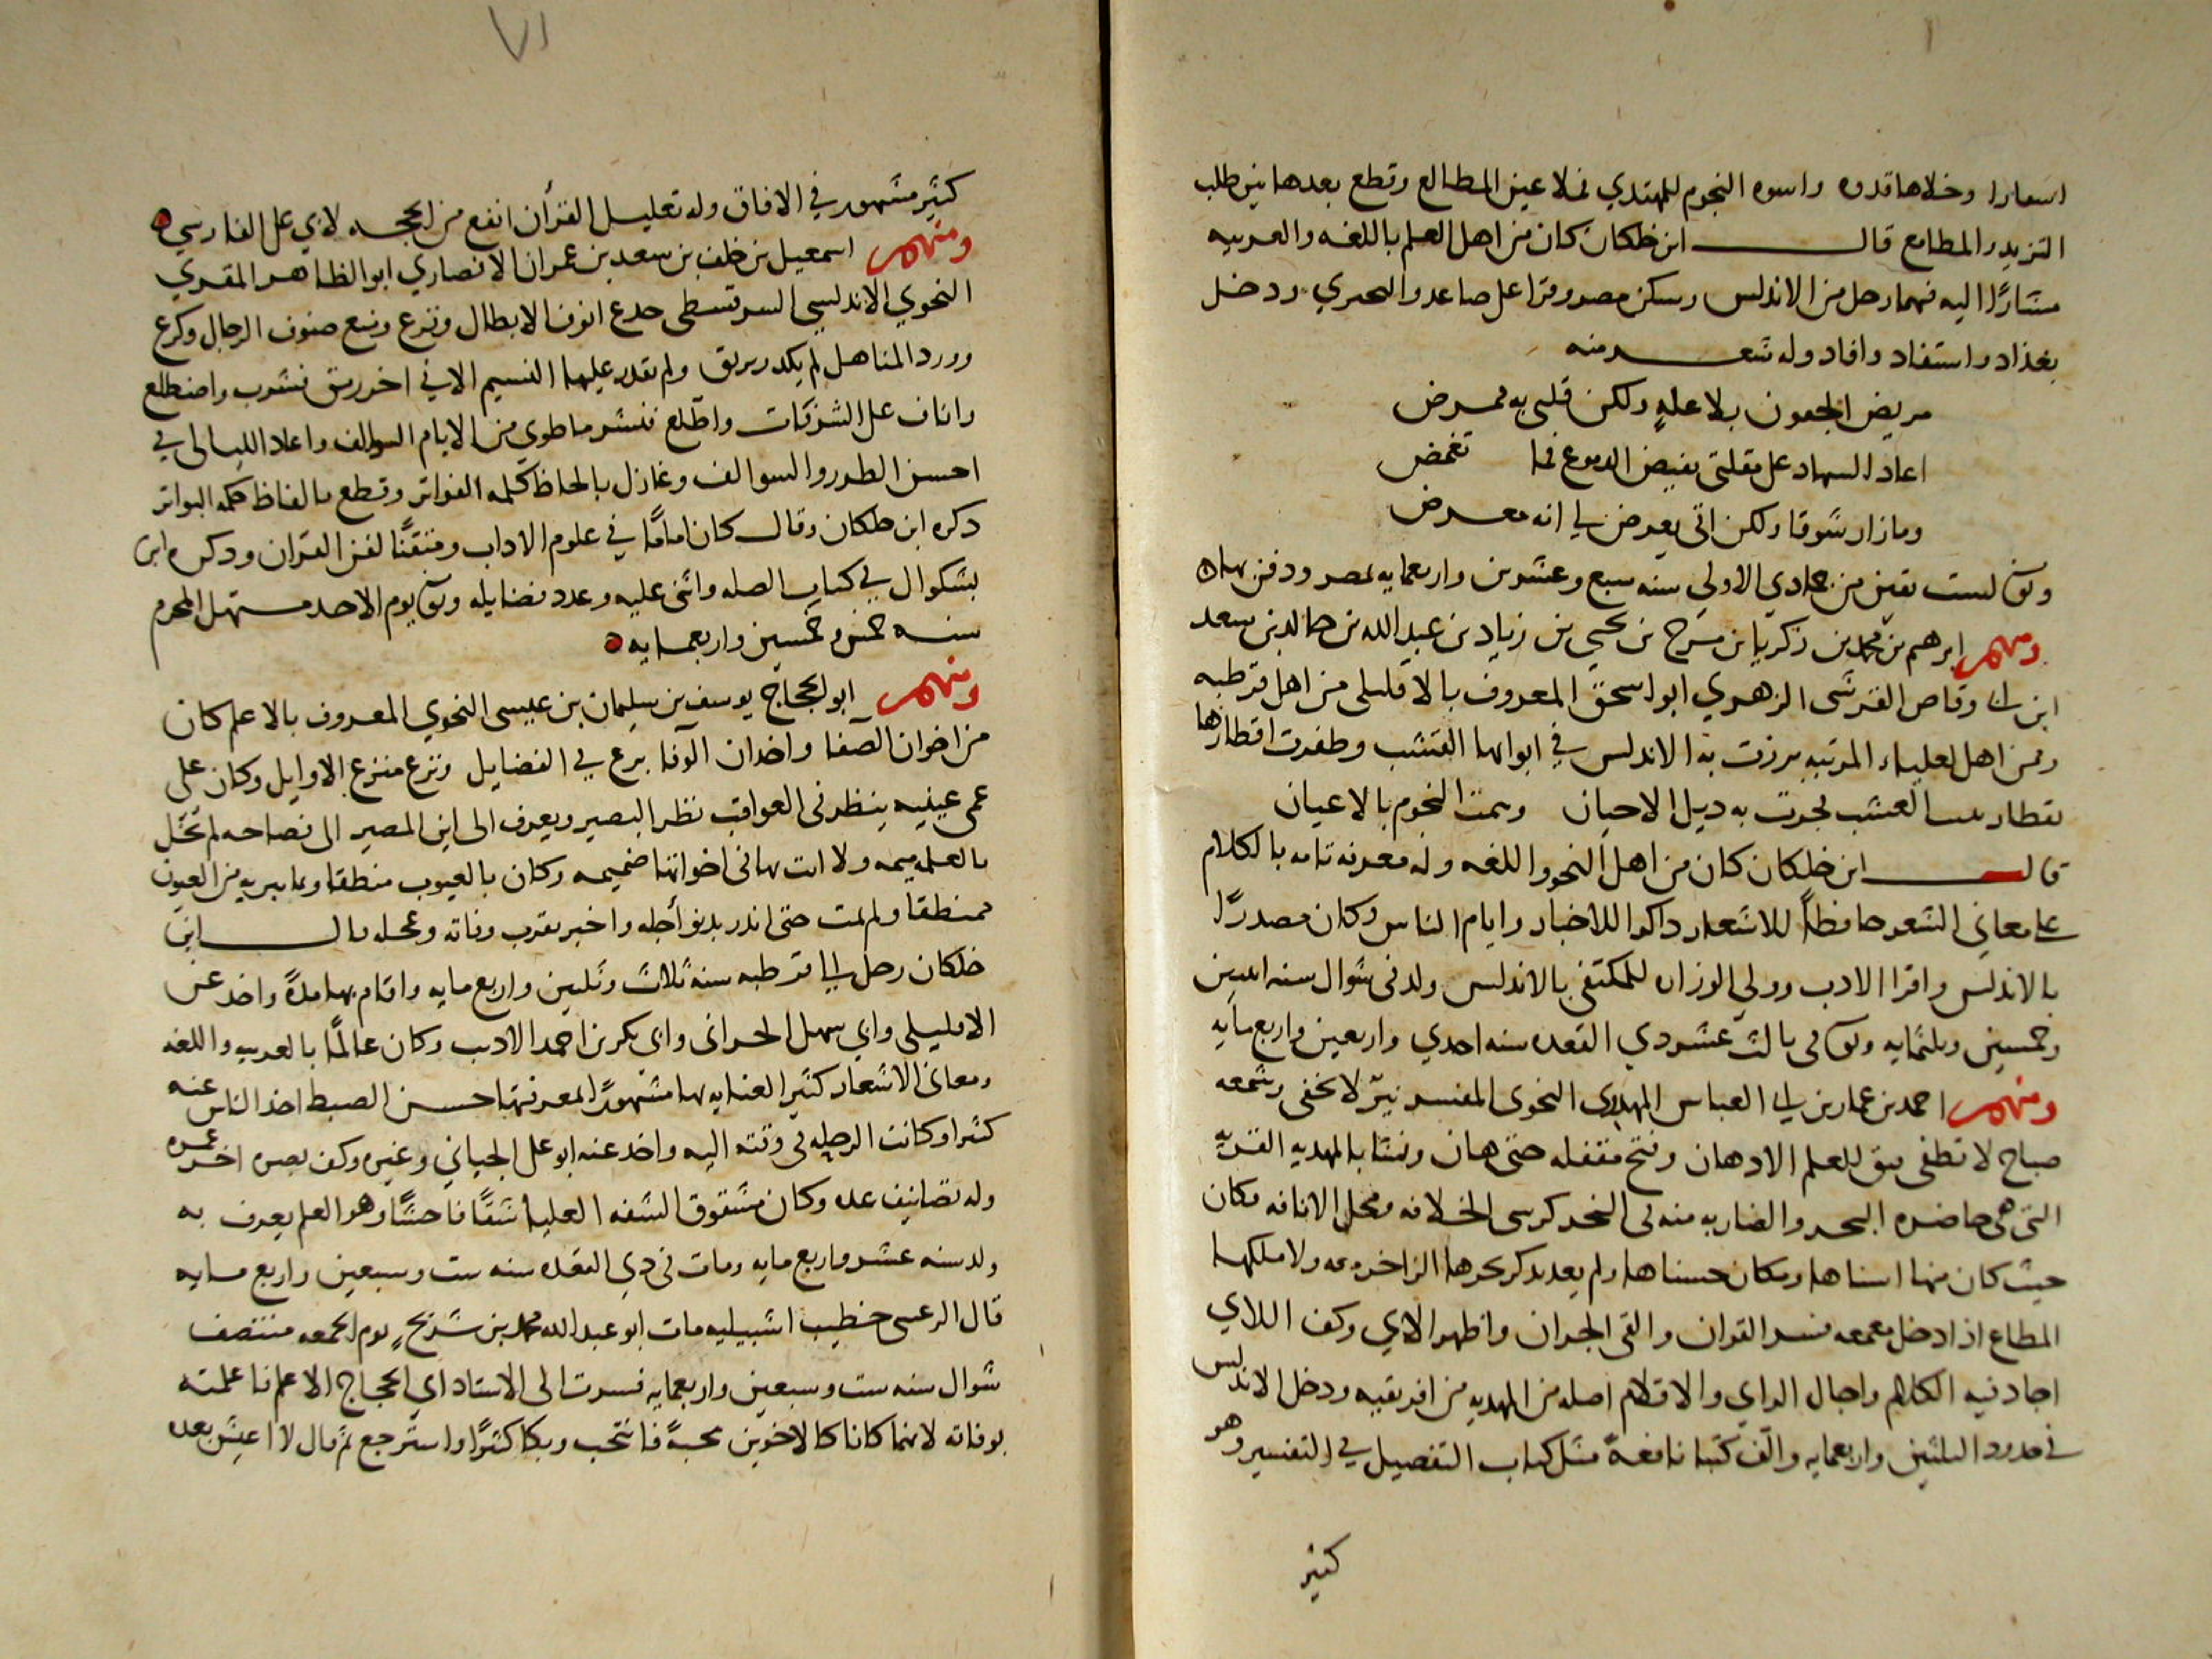 اسعارا وخلاها قدوه واسوه النجوم للمهتدي فملا عين المطالع وقطع بعدها بين طلب
التزيد والمطامع قال ابن خلكان كان من اهل العلم باللغه والعربيه
مشارًا اليه فيهما رحل من الاندلس وسكن مصر وقرا على صاعد والحمري ودخل
بغداد واستفاد وافاد وله شعر منه
مريض الجفون بلا علةٍ ولكن قلبي به ممرض
اعاد السهاد على مقلتي بفيض الدموع فما تغمض
وما زار شوقا ولكن اتى يعرض لي انه معرض
وتوفى لست بقين من جمادي الاولي سنه سبع وعشرين واربعمايه بمصر ودفن بها
ومنهم ابرهيم بن محمد بن زكريا بن مفرح بن يحيى بن زياد بن عبد الله بن خالد بن سعد
ابن ابي وقاص القرشى الزهري ابو اسحق المعروف بالافليلى من اهل قرطبه
وممن اهل لعلياء المرتبه برزت به الاندلس في ابوابها القشب وظفرت اقطارها
بقطار العشب لجرت به ديل الاحيان وسمت النجوم بالاعيان
قال ابن خلكان كان من اهل النحو واللغه وله معرفه تامه بالكلام
على معاني الشعر حافظاً للاشعار داكرا للاخبار وايام الناس وكان مصدرًا
بالاندلس واقرا الادب وولي الوزاره للمكتفى بالاندلس ولد في شوال سنه اثنين
وخمسين وثلثمايه وتوفى في ثالث عشر دي القعده سنه احدي واربعين واربع مايه
ومنهم احمد بن عمار بن ابي العباس المهدوى النحوى المفسر نيّر لا يخفى وشمعه
صباح لا تطفى سبق للعلم الادهان وفتح مقفله حتى هان ونشا بالمهديه القريه
التى هي حاضره البحر والضاربه منه في النحر كرسى الخلافه ومحل الانافه فكان
حيث كان منها اسناها ومكان حسناها ولم يعد يدكر بحرها الزاخر معه ولا ملكها
المطاع اذا دخل معمعه فسر القران والقى الجران واظهر الاي وكف اللاي
اجاد فيه الكلام واجال الراي والاقلام اصله من المهديه من افريقيه ودخل الاندلس
في حدود الثلثين واربعمايه والّف كتبا نافعةً مثل كتاب التفصيل في التفسير وهو
كثير
٧١
كثير مشهور في الافاق وله تعليل القرأن انفع من الحجه لابي على الفارسي
ومنهم اسمعيل بن خلف بن سعد بن عمران الانصاري ابو الظاهر المقري
النحوي الاندلسي السرقسطى جدع انوف الابطال وفرع صنوف الرجال وكرع
وورد المناهل لم يكدر بريق ولم تقدر عليها النسيم الا في اخر ريق فشرب واضطلع
واناف على الشرفات واطّلع فنشر ما طوى من الايام السوالف واعاد الليالى في
احسن الطرر والسوالف وغازل بالحاظ كلمه الفواتر وقطع بالفاظ حكمه البواتر
دكره ابن خلكان وقال كان امامًا في علوم الاداب ومتقنًا لفن القران ودكره ابن
بشكوال في كتاب الصله واثنى عليه وعدد فضايله وتوفى يوم الاحد مستهل المحرم
سنه خمس وخمسين واربعمايه
ومنهم ابو الحجاج يوسف بن سليمان بن عيسى النحوي المعروف بالاعلم كان
من اخوان الصفا واخدان الوفا برع في الفضايل ونزع منزع الاوايل وكان على
عمى عينيه ينظر في العواقب نظر البصير ويعرف الى اين المصير الى فصاحه لم تخّل
بالعلم ميمه ولا اتت بها في اخواتها ضميمه وكان بالعيوب منطقا وبما يبريه من العيون
ممنطقا ولم يمت حتى اندر بدنو أجله واخبر بقرب وفاته وعجله قال ابن
خلكان رحل الى قرطبه سنه ثلاث وثلثين واربع مايه واقام بها مدةً واخد عن
الافليلى وابي سهل الحرانى وابى بكر بن احمد الاديب وكان عالمًا بالعربيه واللغه
ومعاني الاشعار كثير العنايه بها مشهورًا لمعرفتها حسن الضبط اخد الناس عنه
كثيرا وكانت الرحله في وقته اليه واخد عنه ابو على الجياني وغيره وكف بصره اخر عمره
وله تصانيف عده وكان مشقوق الشفه العليا شقًا فاحشًا وهو العلم يعرف به
ولد سنه عشر واربع مايه ومات في دي القعده سنه ست وسبعين واربع مايه
قال الرعينى خطيب اشبيليه مات ابو عبد الله محمد بن شريح يوم الجمعه منتصف
شوال سنه ست وسبعين واربعمايه فسرت الى الاستاد ابي الحجاج الاعلم فاعلمته
بوفاته لانهما كانا كالاخوين محبةً فانتحب وبكا كثيرًا واسترجع ثم قال لا اعيش بعده